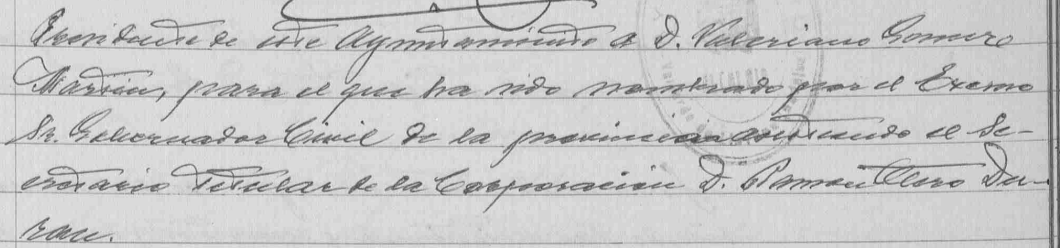 Presidente de este Ayuntamiento a D. Valeriano Romero
Martin, para el que ha sido nombrado por el Excmo
Sr. Gobernador Civil de la provincia asistiendo el Se-
cretario Titular de la Corporacion D. Ramon Otero Du-
ran.